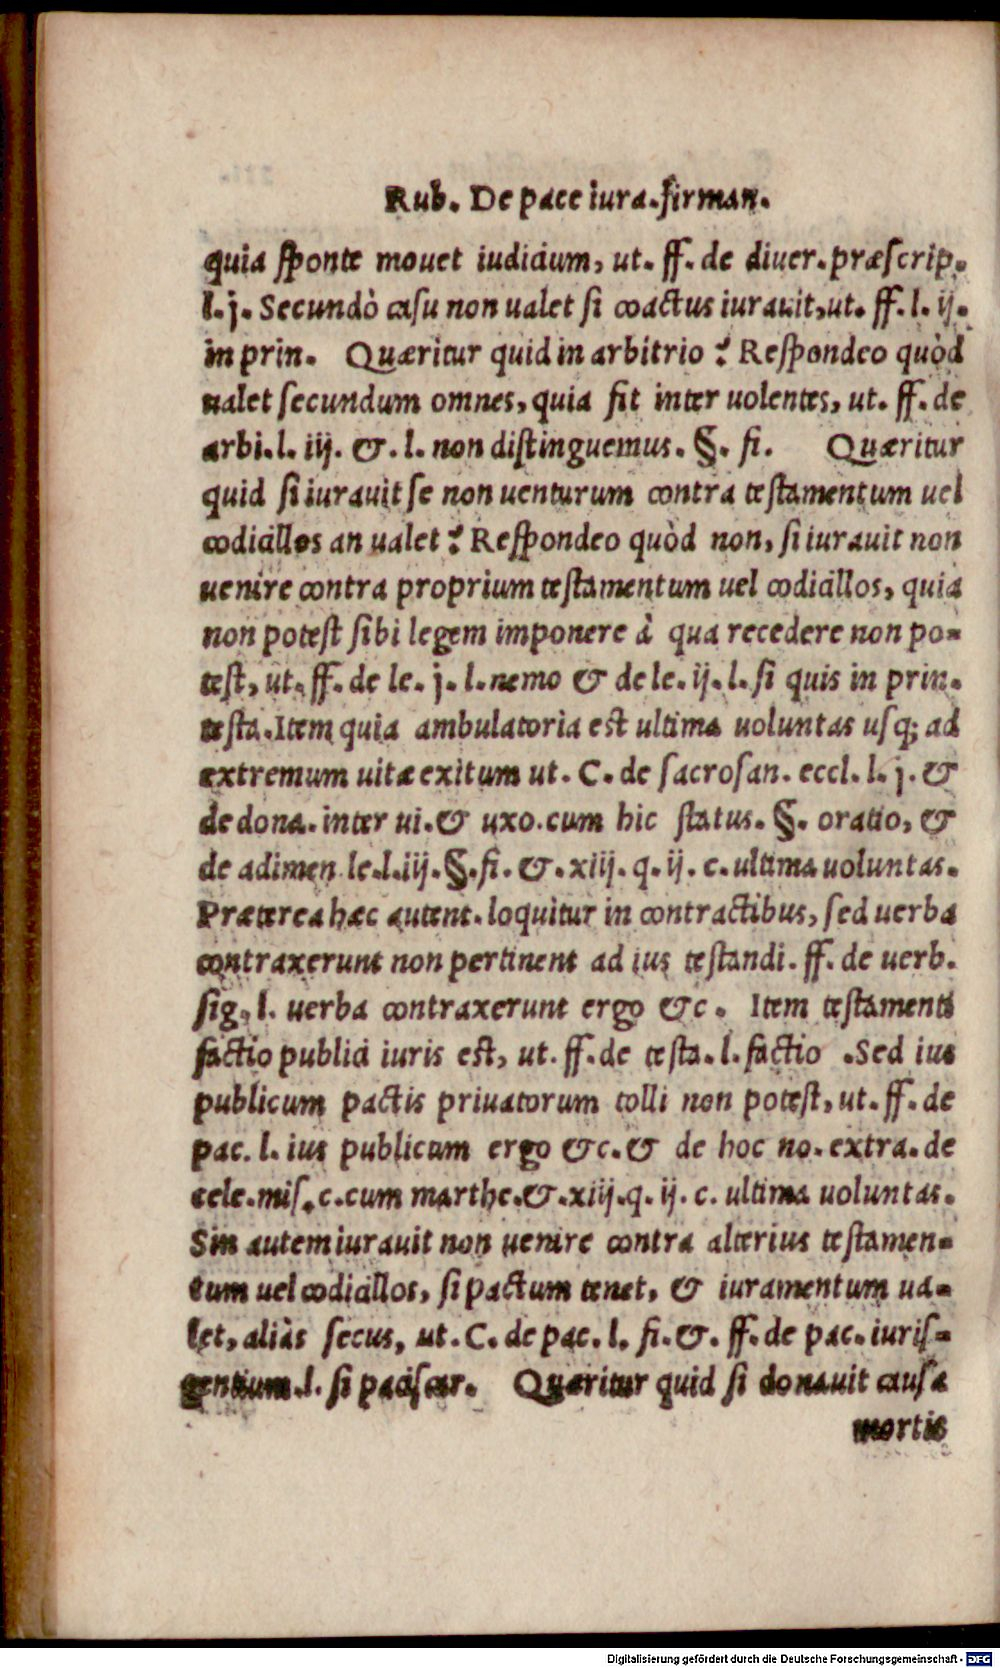 Rub. De pace iura. firman.
quia sponte mouet iudicium, ut. ff. de diuer. præscrip.
l. j. Secundò casu non ualet si coactus iurauit, ut. ff. l. ij.
in prin. Quæritur quid in arbitrio? Respondeo quòd
ualet secundum omnes, quia fit inter uolentes, ut. ff. de
arbi. l. iij. &. l. non distinguemus. §. fi. Quæritur
quid si iurauit se non uenturum contra testamentum uel
codicillos an ualet? Respondeo quòd non, si iurauit non
uenire contra proprium testamentum uel codicillos, quia
non potest sibi legem imponere à qua recedere non po-
test, ut. ff. de le. j. l. nemo & de le. ij. l. si quis in prin.
testa. Item quia ambulatoria est ultima uoluntas usq; ad
extremum uitæ exitum ut. C. de sacrosan. eccl. l. j. &
de dona. inter ui. & uxo. cum hic status. §. oratio, &
de adimen le. l. iij. §. fi. &. xiij. q. ij. c. ultima uoluntas.
Præterea hæc autent. loquitur in contractibus, sed uerba
contraxerunt non pertinent ad ius testandi. ff. de uerb.
sig. l. uerba contraxerunt ergo &c. Item testamenti
factio publici iuris est, ut. ff. de testa. l. factio . Sed ius
publicum pactis priuatorum tolli non potest, ut. ff. de
pac. l. ius publicum ergo &c. & de hoc no. extra. de
cele. mis. c. cum marthe. &. xiij. q. ij. c. ultima uoluntas.
Sin autem iurauit non uenire contra alterius testamen-
tum uel codicillos, si pactum tenet, & iuramentum ua-
let, aliàs secus, ut. C. de pac. l. fi. &. ff. de pac. iuris-
gentium. l. si paciscar. Quæritur quid si donauit causa
mortis
Digitalisierung gefördert durch die Deutsche Forschungsgemeinschaft - DFG